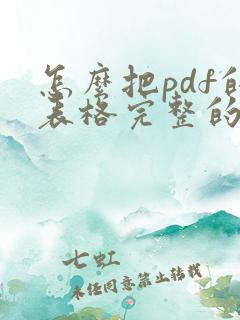 怎麼把pdf的
表格完整的
七虹
未经同意禁止转载